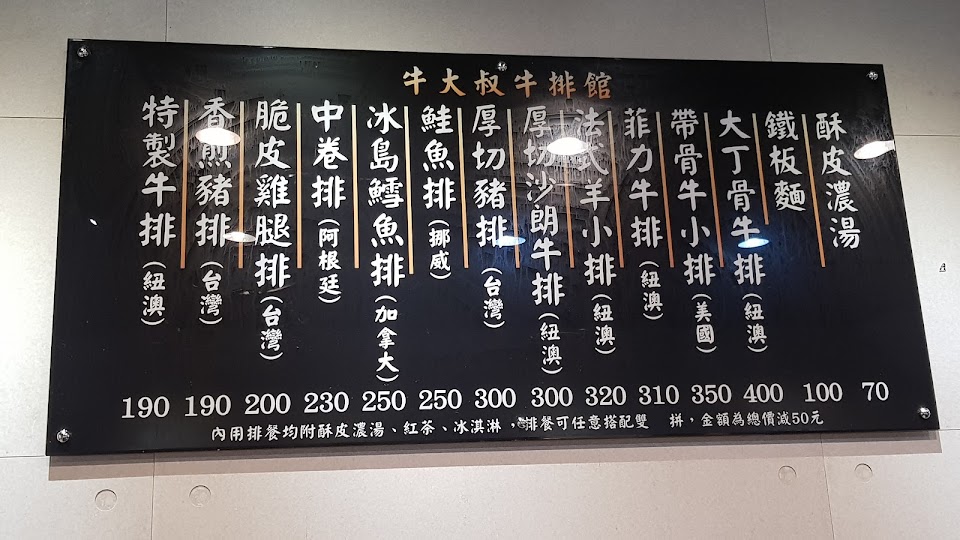 牛大叔牛排館
特製牛排(紐澳)
香煎豬排(台灣)
脆皮雞腿排(台灣)
中卷排(阿根廷)
冰島鱈魚排(加拿大)
鮭魚排(挪威)
厚切豬排(台灣)
厚切沙朗牛排(紐澳)
法式羊小排(紐澳)
菲力牛排(紐澳)
帶骨牛小排(美國)
大丁骨牛排(紐澳)
鐵板麵
酥皮濃湯
190 190 200 230 250 250 300 300 320 310 350 400 100 70
內用排餐均附酥皮濃湯、紅茶、冰淇淋，排餐可任意搭配雙 拼，金額為總價減50元